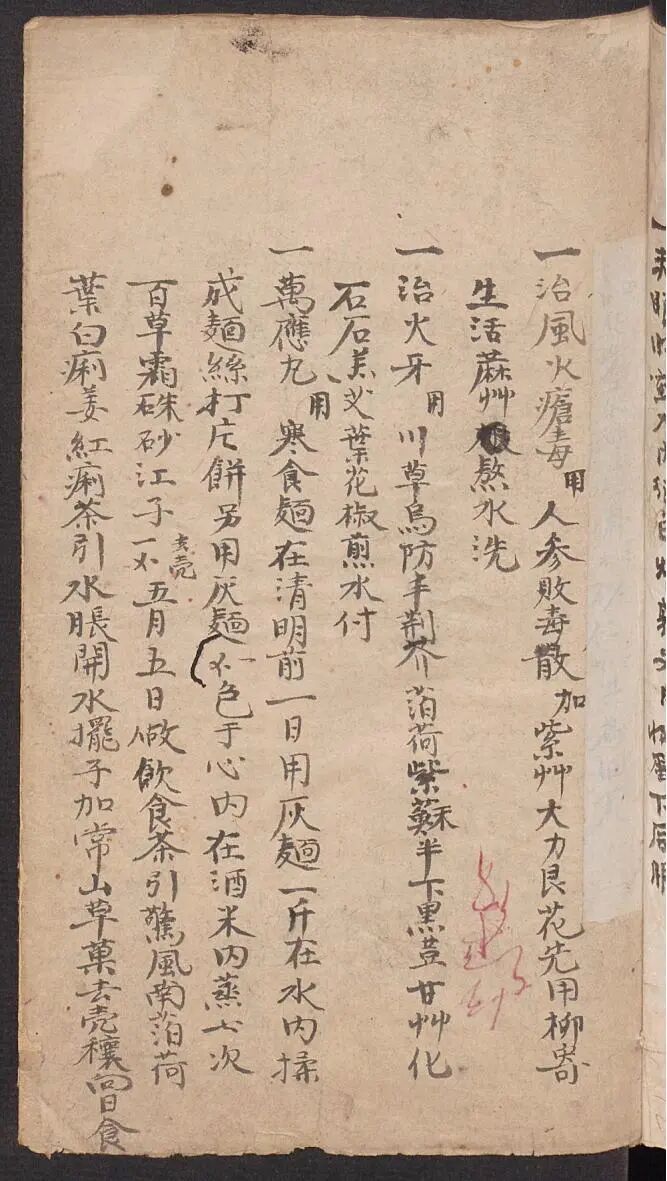 一治風火瘡毒用人參敗毒散加紫艸大力艮花先用柳寄
生活蔴艸熬水洗
一治火牙用川草烏防丰荆芥萡荷紫蘇半下黒荳甘艸化
石石羔艾葉花椒煎水付
一萬應丸用寒食麵在清明前一日用灰麵一斤在水内揉
成麵絲打片餅另用灰麵一不色于心内在酒米内蒸七次
百草霜硃砂江子一不去壳五月五日做飲食茶引驚風南萡荷
葉白痢姜紅痢茶引水脹開水擺子加常山草菓去壳穰向日食